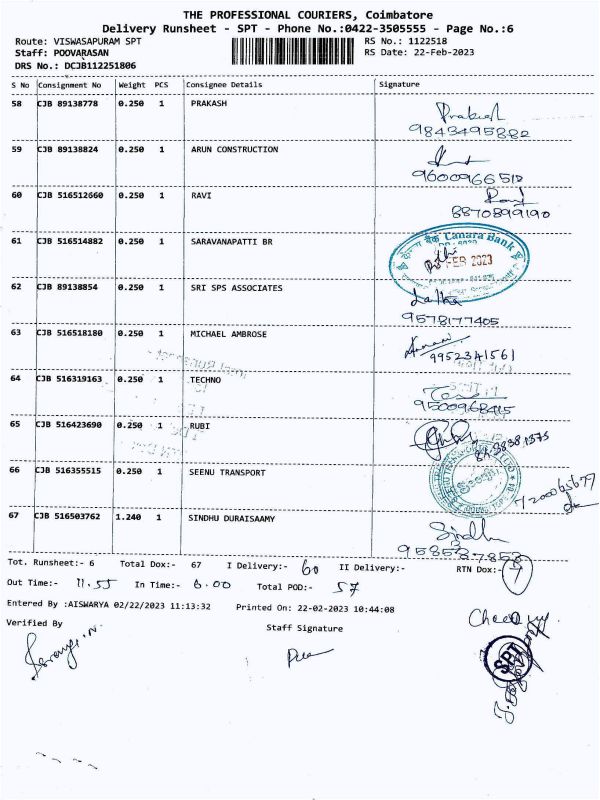 THE PROFESSIONAL COURIERS, Coimbatore
Delivery Runsheet - SPT - Phone No.:0422-3505555 - Page No.:6
Route: VISWASAPURAM SPT RS No.: 1122518
Staff: POOVARASAN RS Date: 22-Feb-2023
DRS No.: DCJB112251806
S No Consignment No Weight PCS Consignee Details Signature
58 CJB 89138778 0.250 1 PRAKASH Prakash
9843495882
59 CJB 89138824 0.250 1 ARUN CONSTRUCTION
9600966510
60 CJB 516512660 0.250 1 RAVI Ravi
8870899190
61 CJB 516514882 0.250 1 SARAVANAPATTI BR Canara Bank
FEB 2023
62 CJB 89138854 0.250 1 SRI SPS ASSOCIATES Latha
9578177405
63 CJB 516518180 0.250 1 MICHAEL AMBROSE
9952341561
64 CJB 516319163 0.250 1 TECHNO
9500968415
65 CJB 516423690 0.250 1 RUBI
66 CJB 516355515 0.250 1 SEENU TRANSPORT
67 CJB 516503762 1.240 1 SINDHU DURAISAAMY Sindhu
9585837853
Tot. Runsheet:- 6 Total Dox:- 67 I Delivery:- 60 II Delivery:- RTN Dox:- 7
Out Time:- 11.55 In Time:- 6.00 Total POD:- 57
Entered By :AISWARYA 02/22/2023 11:13:32 Printed On: 22-02-2023 10:44:08
Verified By Staff Signature
SPT